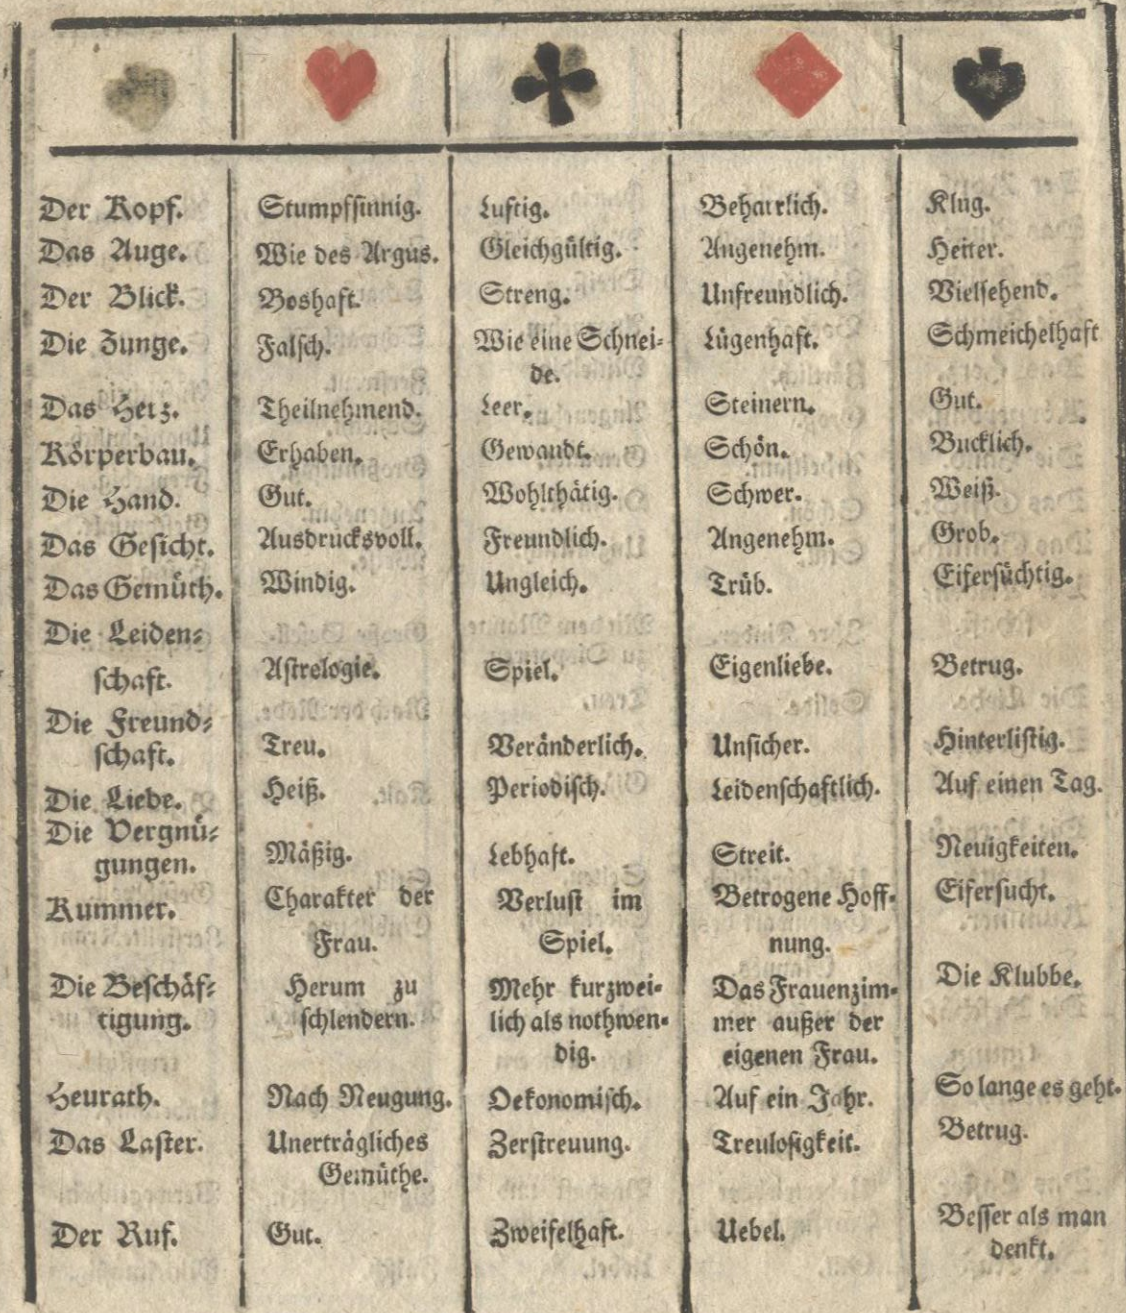 Der Kopf. Stumpfsinnig. Lustig. Beharrlich. Klug.
Das Auge. Wie des Argus. Gleichgültig. Angenehm. Heiter.
Der Blick. Boshaft. Streng. Unfreundlich. Vielsehend.
Die Zunge. Falsch. Wie eine Schnei- Lügenhaft. Schmeichelhaft
de.
Das Herz. Theilnehmend. Leer. Steinern. Gut.
Körperbau. Erhaben. Gewandt. Schön. Bucklich.
Die Hand. Gut. Wohlthätig. Schwer. Weiß.
Das Gesicht. Ausdrucksvoll. Freundlich. Angenehm. Grob.
Das Gemüth. Windig. Ungleich. Trüb. Eifersüchtig.
Die Leiden-
schaft. Astrologie. Spiel. Eigenliebe. Betrug.
Die Freund-
schaft. Treu. Veränderlich. Unsicher. Hinterlistig.
Die Liebe. Heiß. Periodisch. Leidenschaftlich. Auf einen Tag.
Die Vergnü-
gungen. Mäßig. Lebhaft. Streit. Neuigkeiten.
Kummer. Charakter der Verlust im Betrogene Hoff- Eifersucht.
Frau. Spiel. nung.
Die Beschäf- Herum zu Mehr kurzwei- Das Frauenzim- Die Klubbe.
tigung. schlendern. lich als nothwen- mer außer der
dig. eigenen Frau.
Heurath. Nach Neugung. Oekonomisch. Auf ein Jahr. So lange es geht.
Das Laster. Unerträgliches Zerstreuung. Treulosigkeit. Betrug.
Gemüthe.
Der Ruf. Gut. Zweifelhaft. Uebel. Besser als man
denkt.